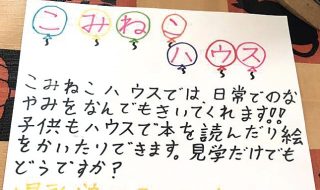 こみねこ
ハウス
こみねこハウスでは、日常でのな
やみをなんでもきいてくれます!!
子供もハウスで本を読んだり絵
をかいたりできます。見学だけでも
どうですか?